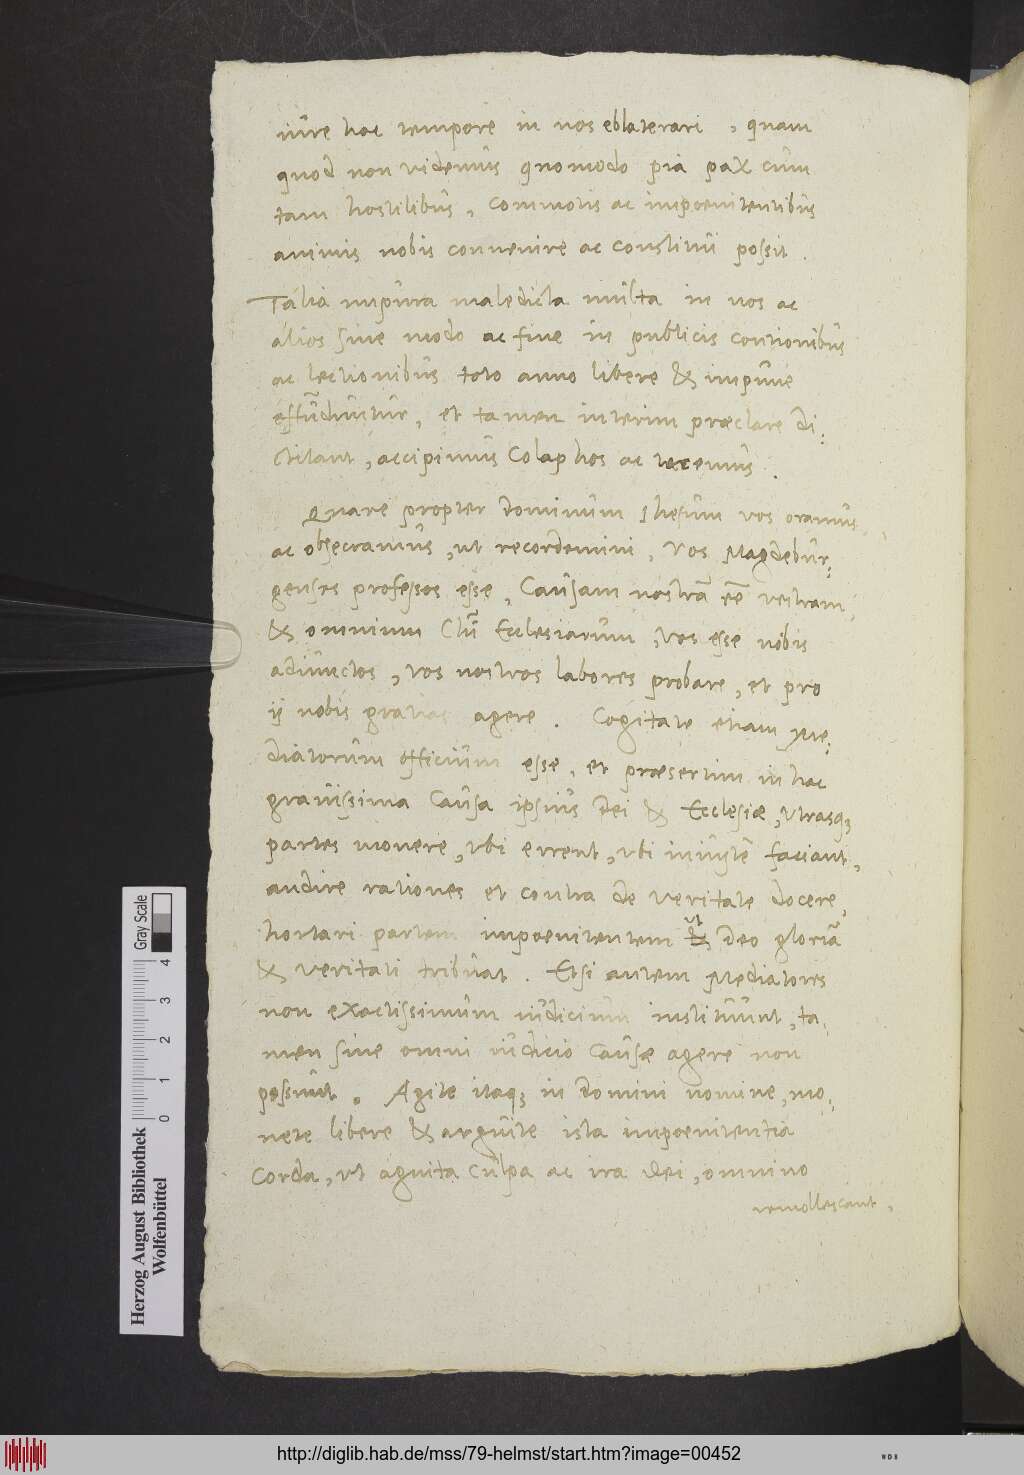 iure hoc tempore in nos eblaterari, quam
quod non videmus quomodo pia pax cum
tam hostilibus, commotis ac impoenitentibus
animis nobis convenire ac constitui possit.
Talia impura maledicta multa in nos ac
alios sine modo ac fine in publicis contionibus
ac lectionibus toto anno libere & impune
effunduntur, et tamen interim praeclare di:
ctitant, accipimus Colaphos ac tacemus.
Quare propter dominum Ihesum vos oramus
ac obsecramus, ut recordemini, Vos Magdebur:
genses professos esse, Causam nostrã eẽ vestram,
& omnium Chri Ecclesiarum, Vos esse nobis
adiunctos, vos nostros labores probare, et pro
ij nobis gratias agere. Cogitate etiam Me:
diatorum officium esse, et praesertim in hac
gravissima Causa ipsius Dei & Ecclesiae, Utrasqꝫ
partes monere, ubi errent, ubi iniustè faciant,
audire rationes et contra de veritate docere,
hortari partem impoenitentem ut & Deo gloriã
& veritati tribuat. Etsi autem Mediatores
non exactissimum iudicium instituunt, ta:
men sine omni iudicio Causae agere non
possunt. Agite itaqꝫ in Domini nomine, mo:
nete libere & arguite ista impoenitentia
Corda, ut agnita culpa ac ira Dei, omnino
remollescant,
Herzog August Bibliothek
Wolfenbüttel
Gray Scale
0 1 2 3 4
http://diglib.hab.de/mss/79-helmst/start.htm?image=00452
WDB